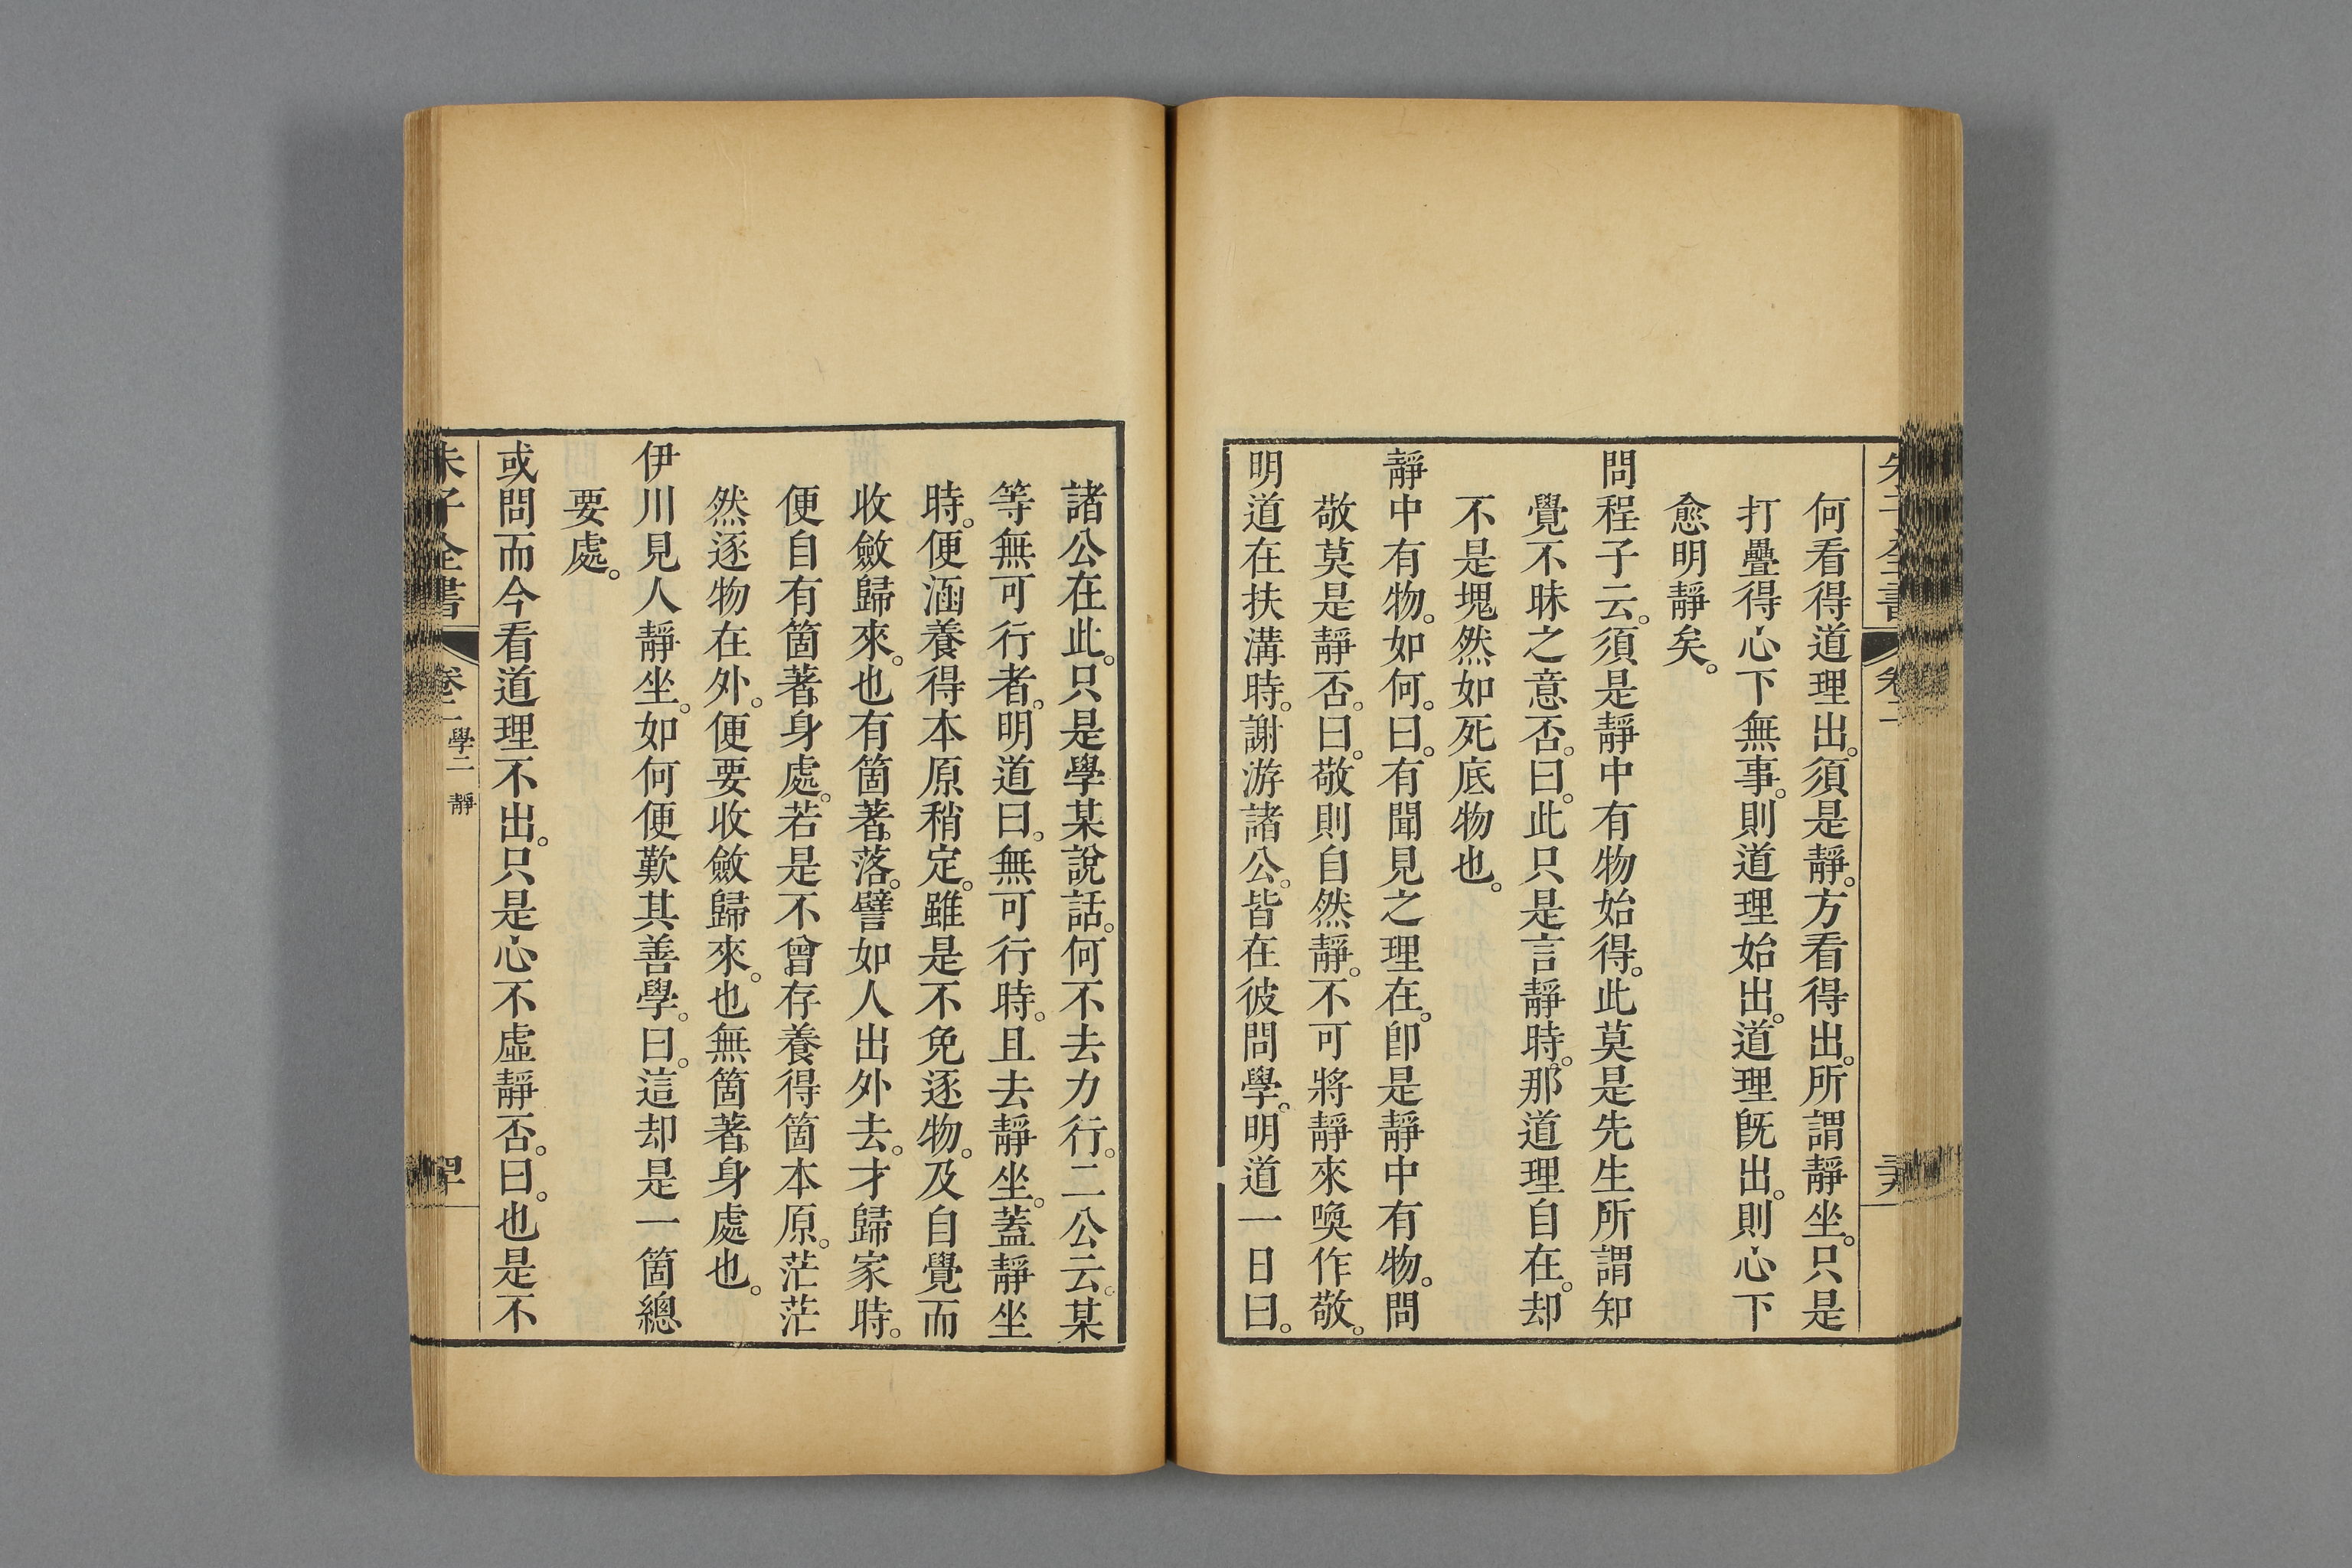 何看得道理出。須是靜。方看得出。所謂靜坐。只是
打疊得心下無事。則道理始出。道理旣出。則心下
愈明靜矣。
問程子云。須是靜中有物始得。此莫是先生所謂知
覺不昧之意否。曰。此只是言靜時。那道理自在。却
不是塊然如死底物也。
靜中有物。如何。曰。有聞見之理在。卽是靜中有物。問
敬莫是靜否。曰。敬則自然靜。不可將靜來喚作敬。
明道在扶溝時。謝游諸公。皆在彼問學。明道一日曰。
諸公在此。只是學某說話。何不去力行。二公云。某
等無可行者。明道曰。無可行時。且去靜坐。蓋靜坐
時。便涵養得本原稍定。雖是不免逐物。及自覺而
收斂歸來。也有箇著落。譬如人出外去。才歸家時。
便自有箇著身處。若是不曾存養得箇本原。茫茫
然逐物在外。便要收斂歸來。也無箇著身處也。
伊川見人靜坐。如何便歎其善學。曰。這却是一箇總
要處。
或問而今看道理不出。只是心不虛靜否。曰。也是不
朱子全書 卷二 學二 靜